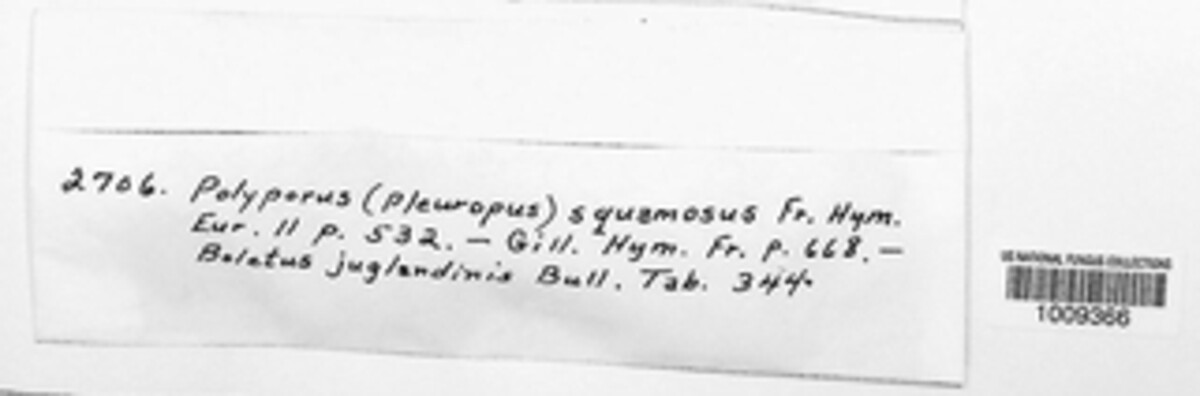 2706. Polyporus (Pleuropus) squamosus Fr. Hym.
Eur. II p. 532. — Gill. Hym. Fr. p. 668. —
Boletus juglandinis Bull. Tab. 344.
US NATIONAL FUNGUS COLLECTIONS
1009366